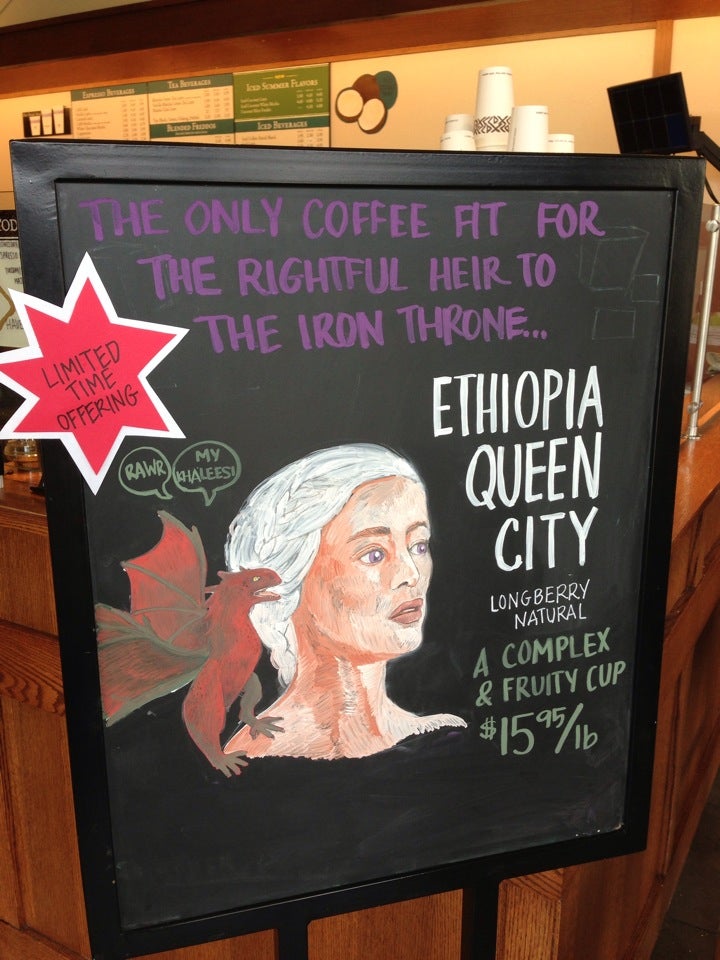 ESPRESSO BEVERAGES
TEA BEVERAGES
NEW
ICED SUMMER FLAVORS
BLENDED FREDDOS
ICED BEVERAGES
THE ONLY COFFEE FIT FOR
THE RIGHTFUL HEIR TO
THE IRON THRONE...
LIMITED
TIME
OFFERING
ETHIOPIA
QUEEN
CITY
RAWR
MY
KHALEESI
LONGBERRY
NATURAL
A COMPLEX
& FRUITY CUP
$15.95/lb